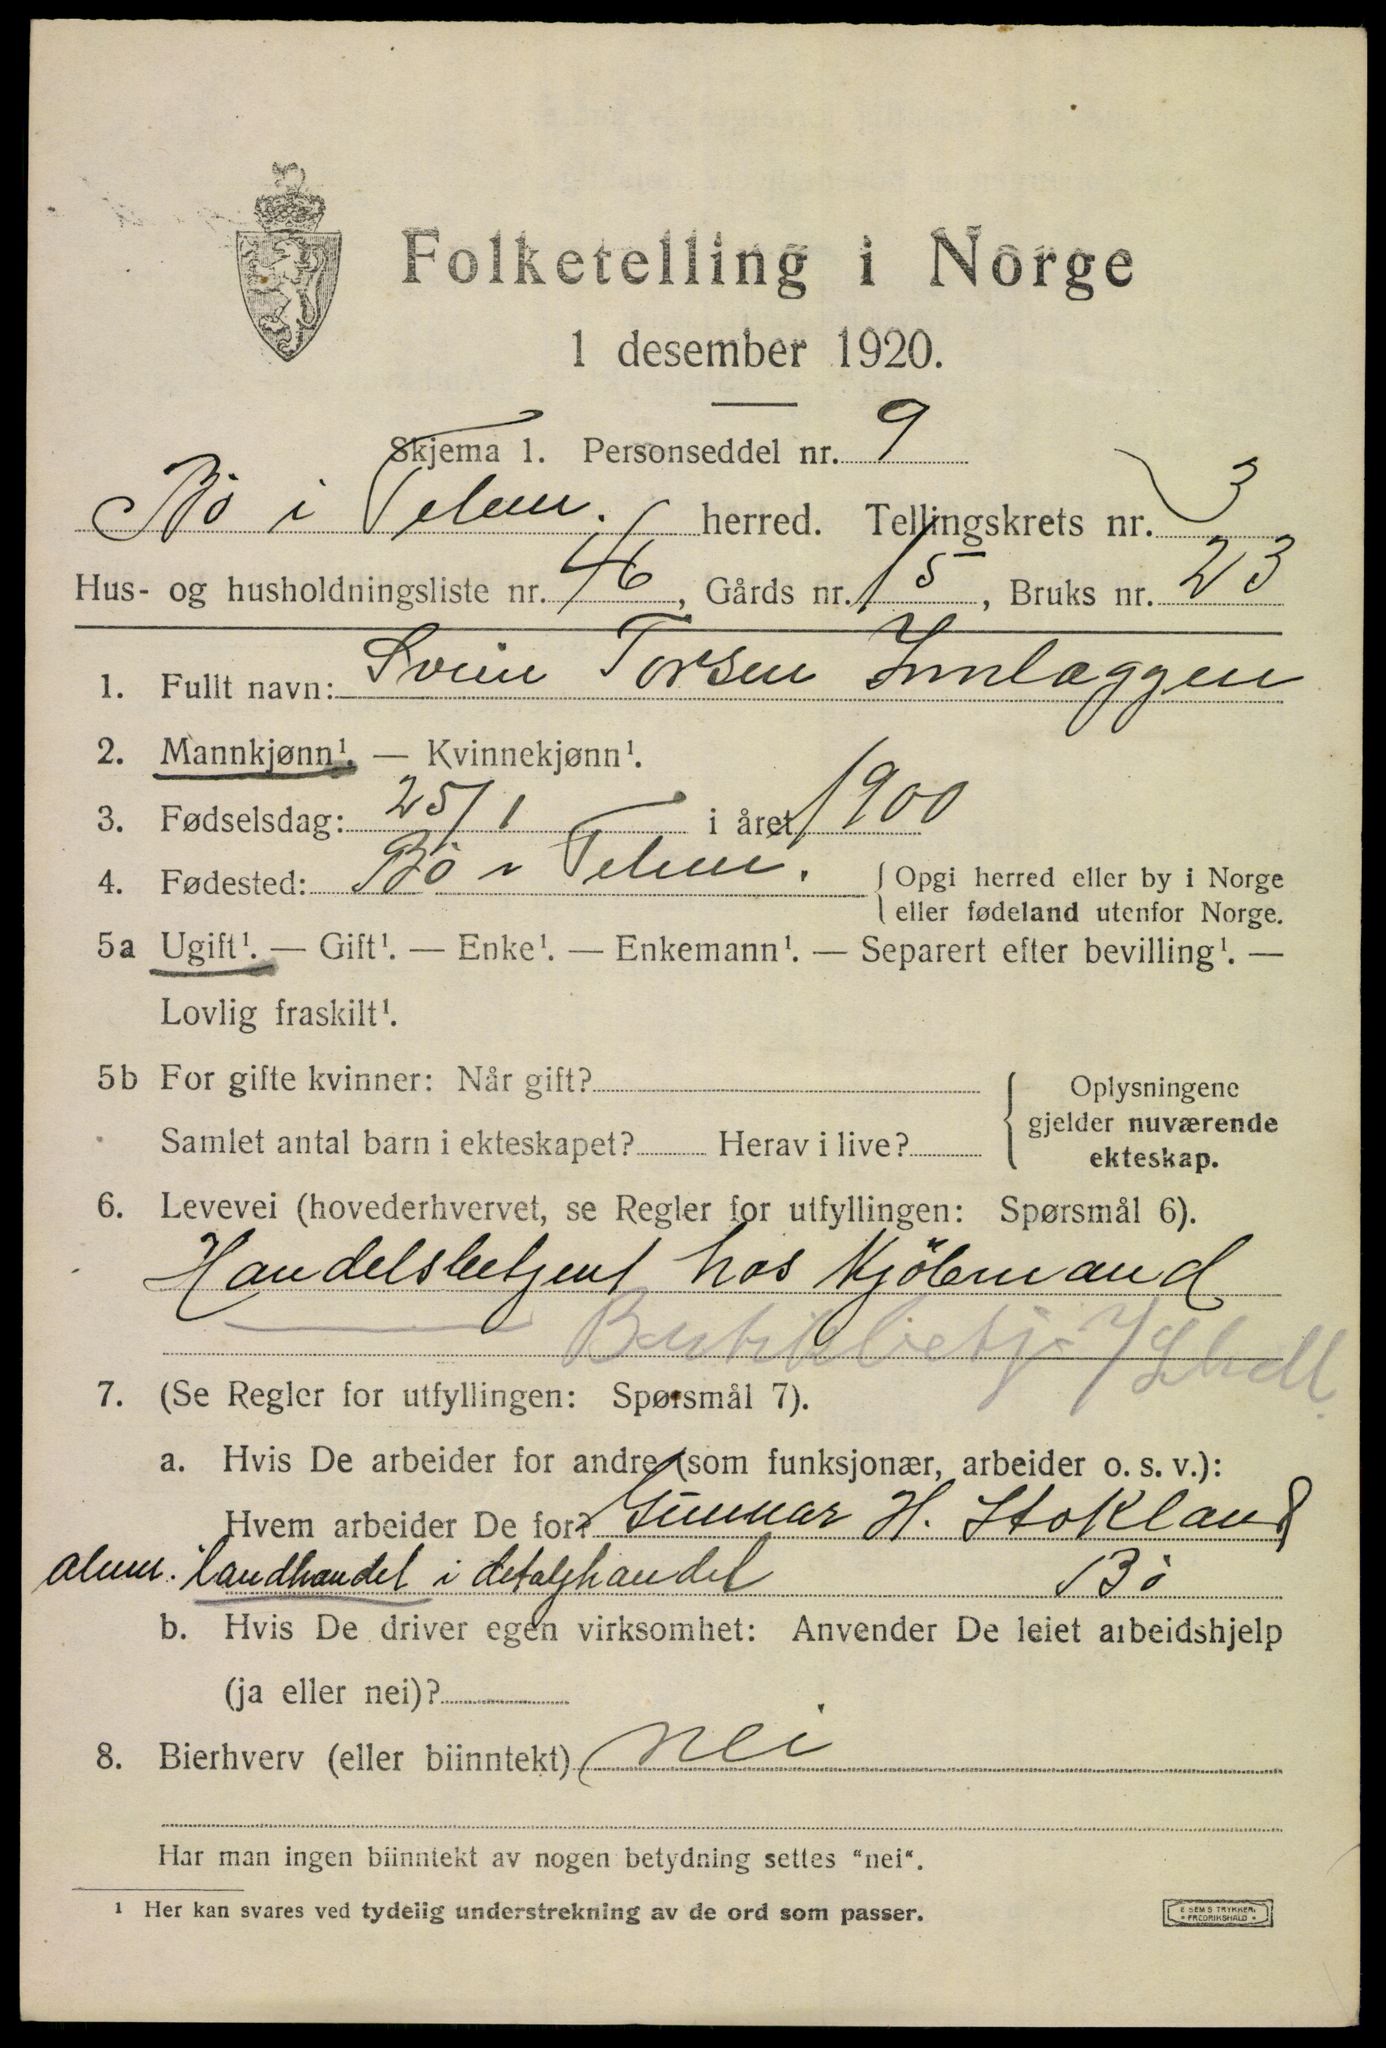 Folketelling i Norge
1 desember 1920.
Skjema 1. Personseddel nr. 9
Bö i Telem. herred. Tellingskrets nr. 3
Hus- og husholdningsliste nr. 46, Gårds nr. 15, Bruks nr. 23
1. Fullt navn: Svein Torsen Innlæggen
2. Mannkjønn¹. — Kvinnekjønn¹.
3. Fødselsdag: 25/1 i året 1900
4. Fødested: Bö i Telem. { Opgi herred eller by i Norge
eller fødeland utenfor Norge.
5a Ugift¹. — Gift¹. — Enke¹. — Enkemann¹. — Separert efter bevilling¹. —
Lovlig fraskilt¹.
5b For gifte kvinner: Når gift?
Oplysningene
gjelder nuværende
ekteskap.
Samlet antal barn i ekteskapet? Herav i live?
6. Levevei (hovederhvervet, se Regler for utfyllingen: Spørsmål 6).
Handelsbetjent hos Kjöbmand
7. (Se Regler for utfyllingen: Spørsmål 7).
a. Hvis De arbeider for andre (som funksjonær, arbeider o. s. v.):
Hvem arbeider De for? Gunnar H. Stokland
alm. landhandel i detaljhandel Bö
b. Hvis De driver egen virksomhet: Anvender De leiet arbeidshjelp
(ja eller nei)?
8. Bierhverv (eller biinntekt) nei
Har man ingen biinntekt av nogen betydning settes "nei".
¹ Her kan svares ved tydelig understrekning av de ord som passer.
E SEMS TRYKKERI
FREDRIKSHALD